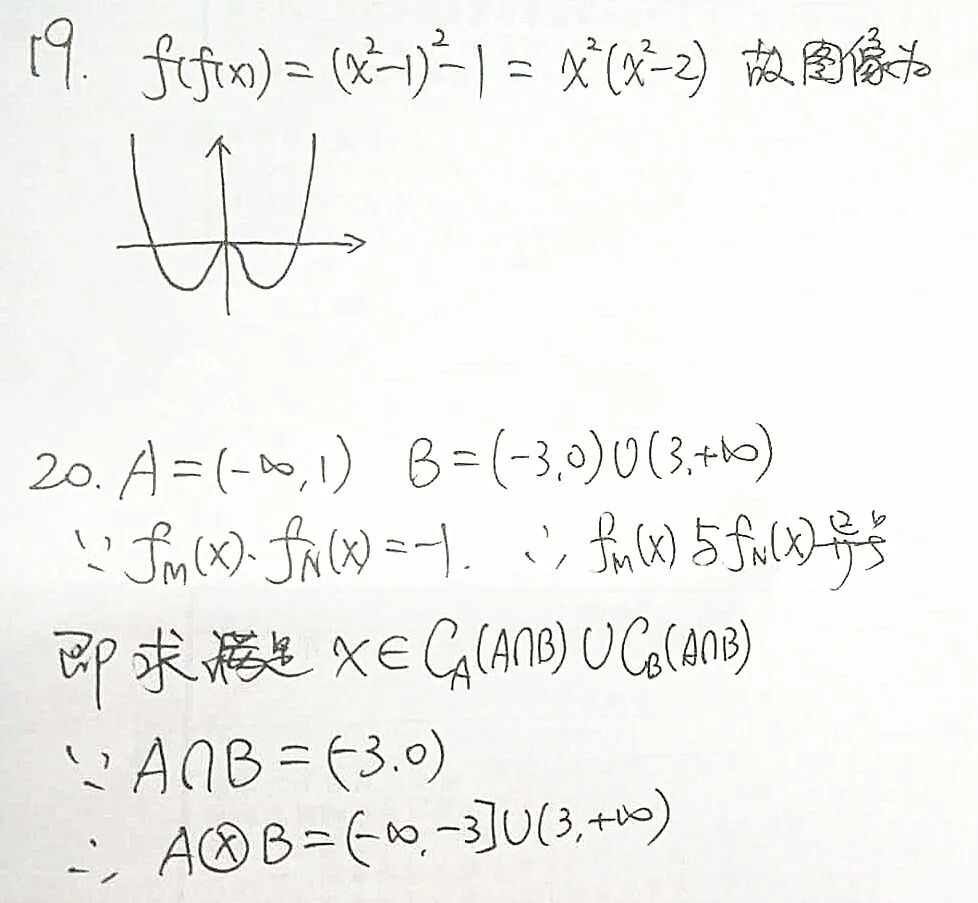 19. f(f(x)) = (x²-1)²-1 = x²(x²-2) 故图像为
20. A=(-∞,1) B=(-3,0)∪(3,+∞)
∵ f_M(x)·f_N(x)=-1. ∴ f_M(x)与f_N(x)异号
即求 x∈C_A(A∩B)∪C_B(A∩B)
∵ A∩B=(-3.0)
∴ A⊗B=(-∞,-3]∪(3,+∞)